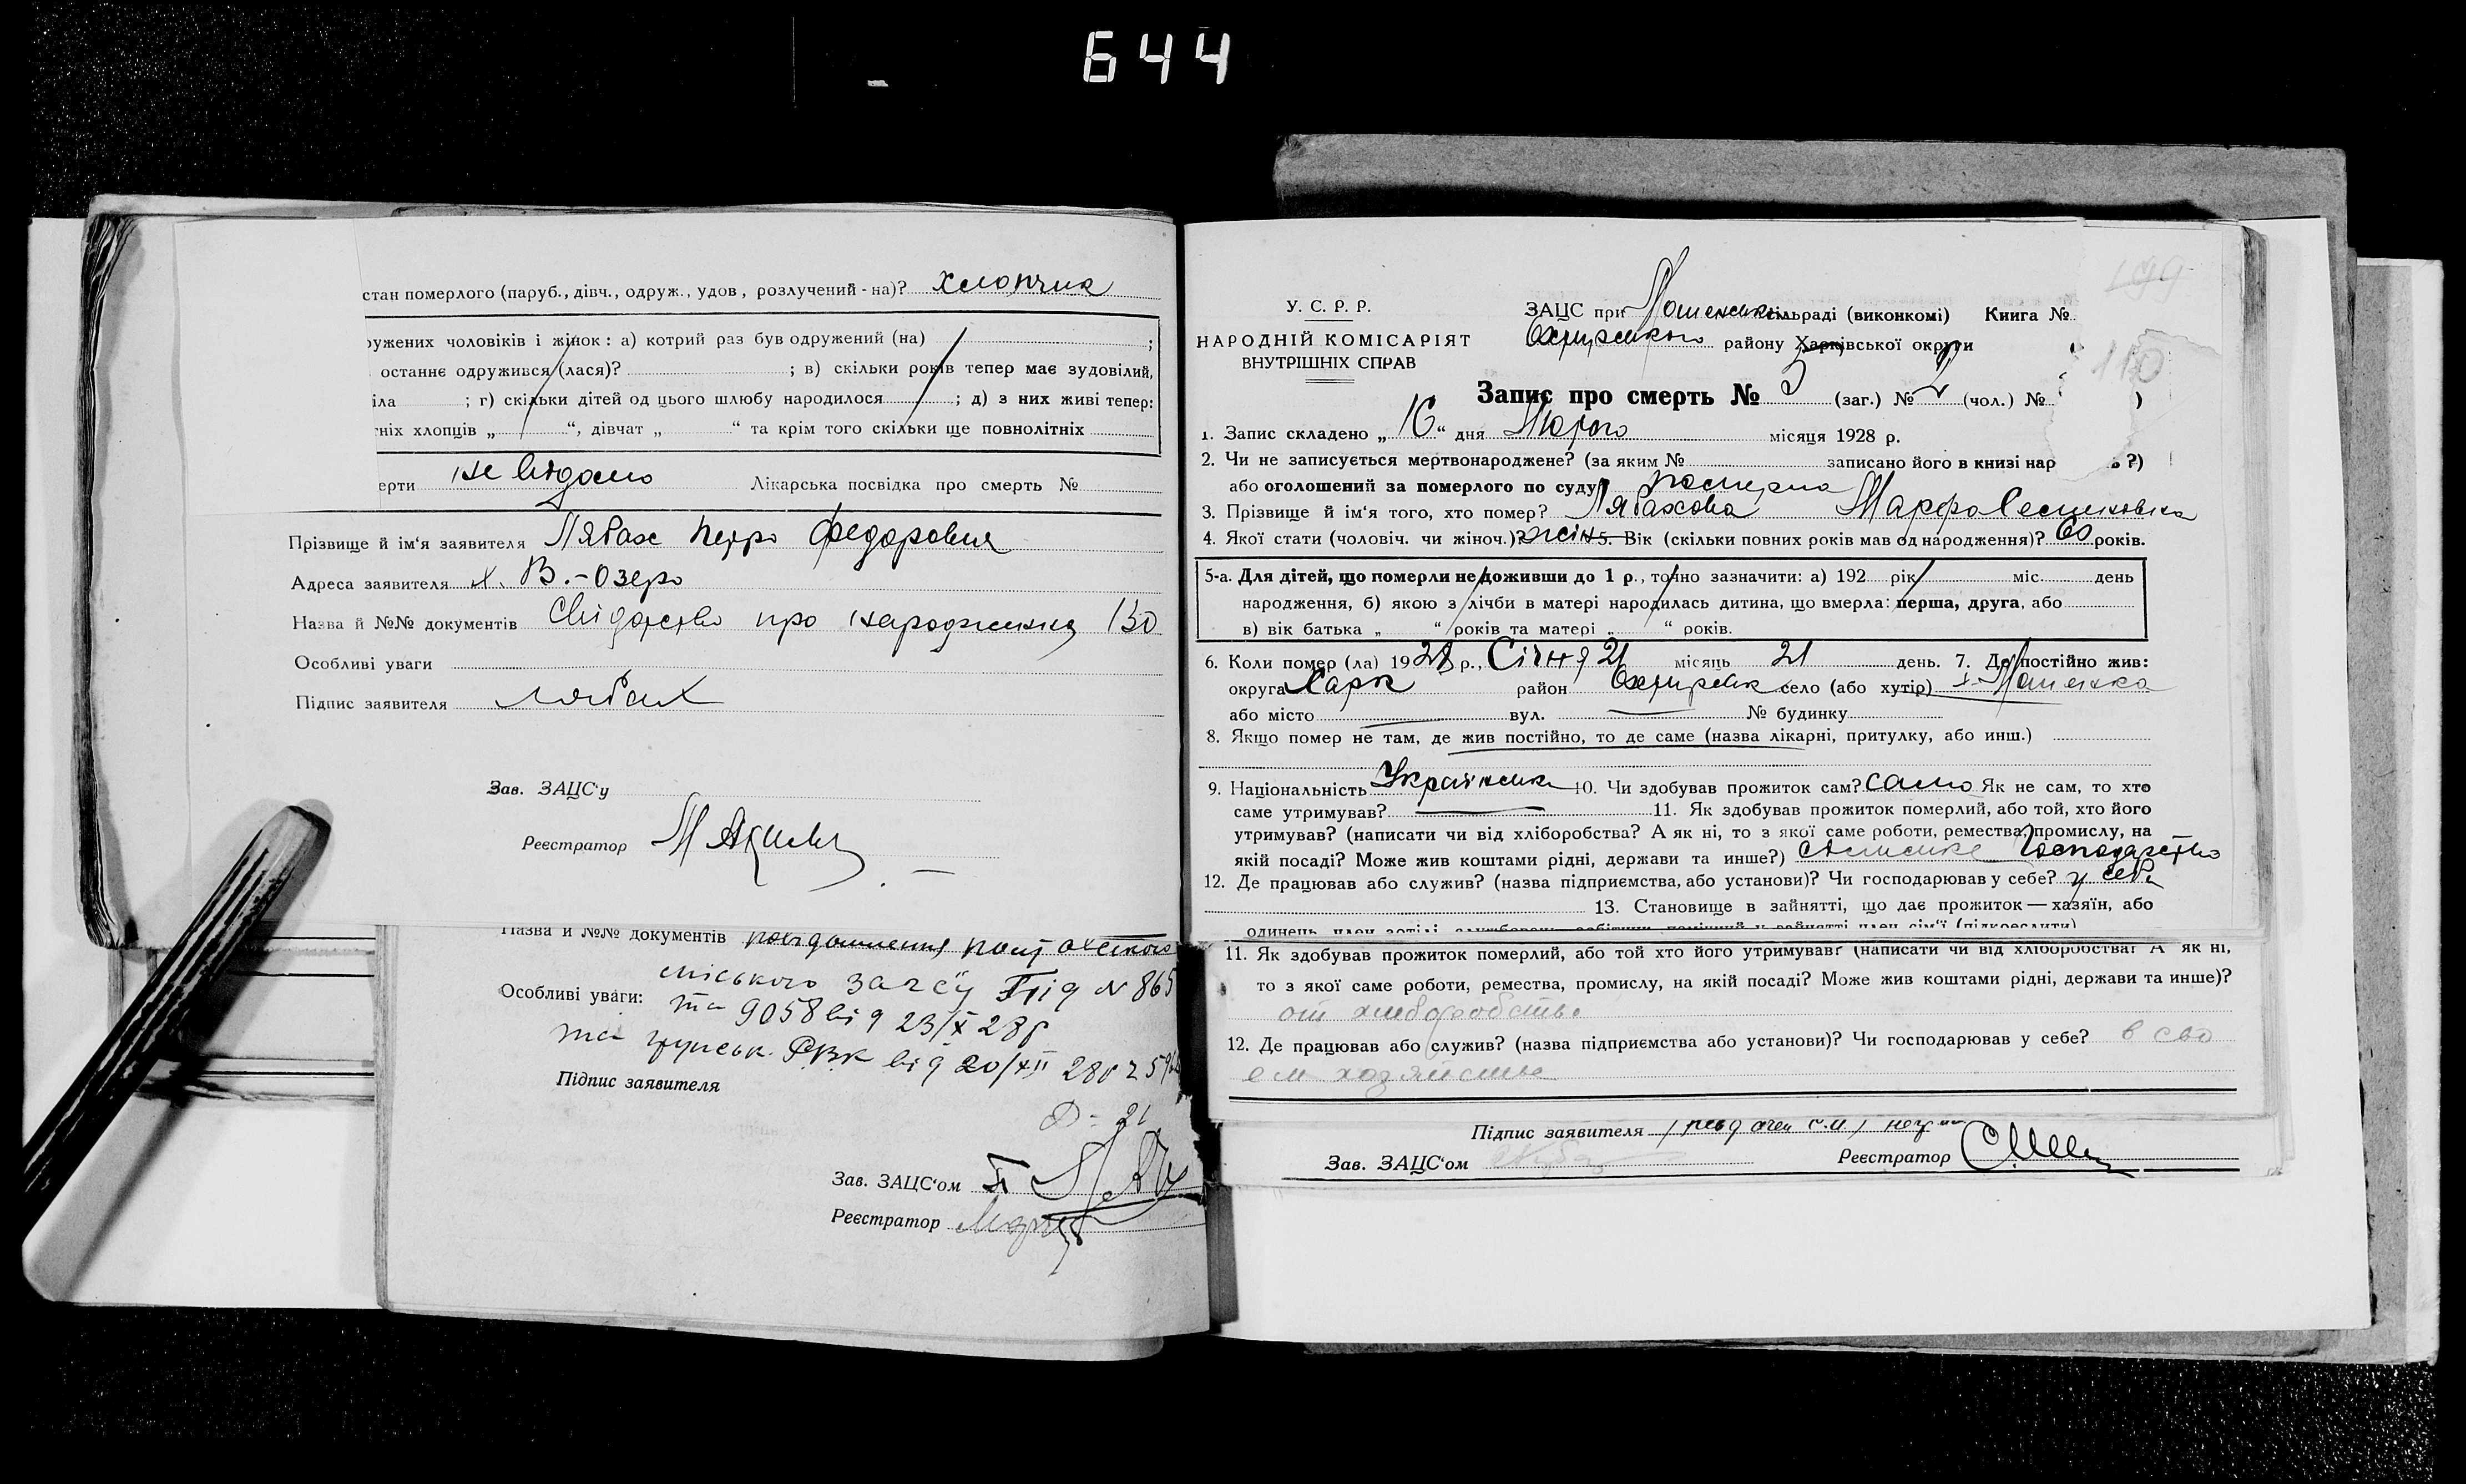 644
стан померлого (паруб., дівч., одруж., удов, розлучений-на)? хлопчик
ружених чоловіків і жінок: а) котрий раз був одружений (на) ;
останнє одружився (лася)? ; в) скільки років тепер має зудовілий,
іла ; г) скільки дітей од цього шлюбу народилося ; д) з них живі тепер:
тніх хлопців „ “, дівчат „ “ та крім того скільки ще повнолітніх
ерти не відомо Лікарська посвідка про смерть №
Прізвище й ім'я заявителя Лябах Петро Федорович
Адреса заявителя х. В.-Озеро
Назва й №№ документів Свідоцтво про народження 130
Особливі уваги
Підпис заявителя Лябах
Зав. ЗАЦС'у
Реєстратор
Назва й №№ документів повідомлення
міського загсу від N 865
Особливі уваги: та 9058 від 23/X 28р
та РВК від 20/XII 28р
Підпис заявителя
Зав. ЗАЦС'ом
Реєстратор
199
110
У. С. Р. Р.
НАРОДНІЙ КОМІСАРІЯТ
ВНУТРІШНІХ СПРАВ
ЗАЦС при сільраді (виконкомі) Книга №
району Харківської округи
Запис про смерть № 3 (заг.) № 2 (чол.) № )
1. Запис складено „ 16 “ дня Лютого місяця 1928 р.
2. Чи не записується мертвонароджене? (за яким № записано його в книзі нар ь?)
або оголошений за померлого по суду?
3. Прізвище й ім'я того, хто помер? Лябахова Марфа
4. Якої стати (чоловіч. чи жіноч.)? жін 5. Вік (скільки повних років мав од народження)? 60 років.
5-а. Для дітей, що померли не доживши до 1 р., точно зазначити: а) 192 рік міс. день
народження, б) якою з лічби в матері народилась дитина, що вмерла: перша, друга, або
в) вік батька „ “ років та матері „ “ років.
6. Коли помер (ла) 1928 р., Січня 21 місяць 21 день. 7. Де постійно жив:
округа Харк район село (або хутір) х.
або місто вул. № будинку
8. Якщо помер не там, де жив постійно, то де саме (назва лікарні, притулку, або инш.)
9. Національність Українська 10. Чи здобував прожиток сам? само Як не сам, то хто
саме утримував? 11. Як здобував прожиток померлий, або той, хто його
утримував? (написати чи від хліборобства? А як ні, то з якої саме роботи, ремества, промислу, на
якій посаді? Може жив коштами рідні, держави та инше?) сільське господарство
12. Де працював або служив? (назва підприємства, або установи)? Чи господарював у себе? у себе
13. Становище в зайнятті, що дає прожиток — хазяїн, або
одинець, член артілі, службовець, робітник, помічний у зайнятті член сім'ї (підкреслити)
11. Як здобував прожиток померлий, або той хто його утримував? (написати чи від хліборобства? А як ні,
то з якої саме роботи, ремества, промислу, на якій посаді? Може жив коштами рідні, держави та инше)?
от хлеборобства
12. Де працював або служив? (назва підприємства або установи)? Чи господарював у себе? в сво
ем хозяйстве
Підпис заявителя
Зав. ЗАЦС'ом Реєстратор